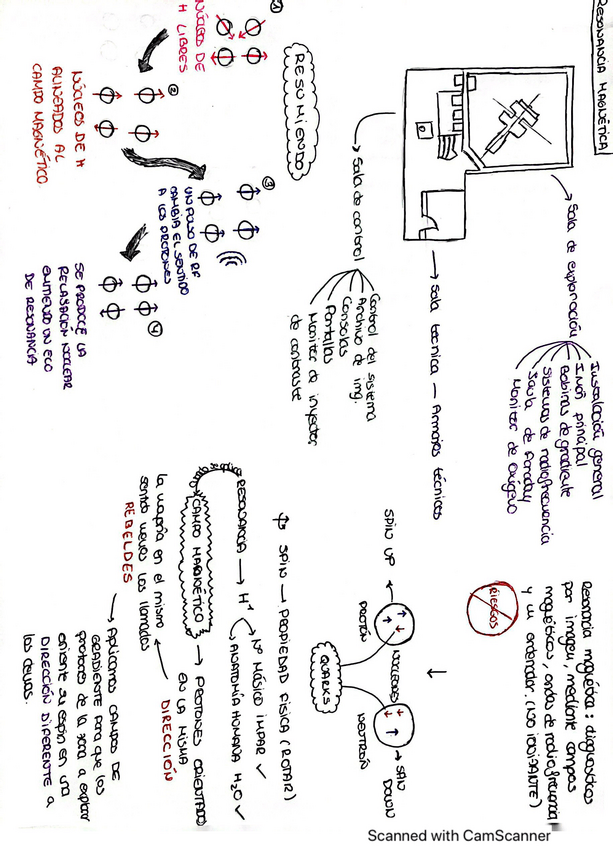 RESONANCIA MAGNÉTICA
Resonancia magnética: diagnóstico
por imagen, mediante campos
magnéticos, ondas de radiofrecuencia
y un ordenador. (NO IONIZANTE)
RIESGOS
Sala de exploración
Instalación general
Imán principal
Bobinas de gradiente
Sistemas de radiofrecuencia
Jaula de Faraday
Monitor de oxígeno
Sala técnica — Armarios técnicos
Sala de control
Control del sistema
Archivo de img.
Consolas
Pantallas
Monitor de inyector
de contraste
SPIN UP
PROTÓN
NUCLEONES
NEUTRÓN
SPIN
DOWN
QUARKS
SPIN → PROPIEDAD FÍSICA (ROTAR)
RESONANCIA → H⁺
Nº MÁSICO IMPAR ✓
ANATOMÍA HUMANA H₂O ✓
se aplica
CAMPO MAGNÉTICO → PROTONES ORIENTADOS
EN LA MISMA
DIRECCIÓN
la mayoría en el mismo
sentido menos los llamados
REBELDES
→ APLICAMOS CAMPOS DE
GRADIENTE para que los
protones de la zona a explorar
oriente su espin en una
DIRECCIÓN DIFERENTE a
las demás.
RESUMIENDO
①
NÚCLEOS DE
H LIBRES
②
NÚCLEOS DE H
ALINEADOS AL
CAMPO MAGNÉTICO
③
UN PULSO DE RF
CAMBIA EL SENTIDO
A LOS PROTONES
④
SE PRODUCE LA
RELAJACIÓN NUCLEAR
EMITIENDO UN ECO
DE RESONANCIA
Scanned with CamScanner